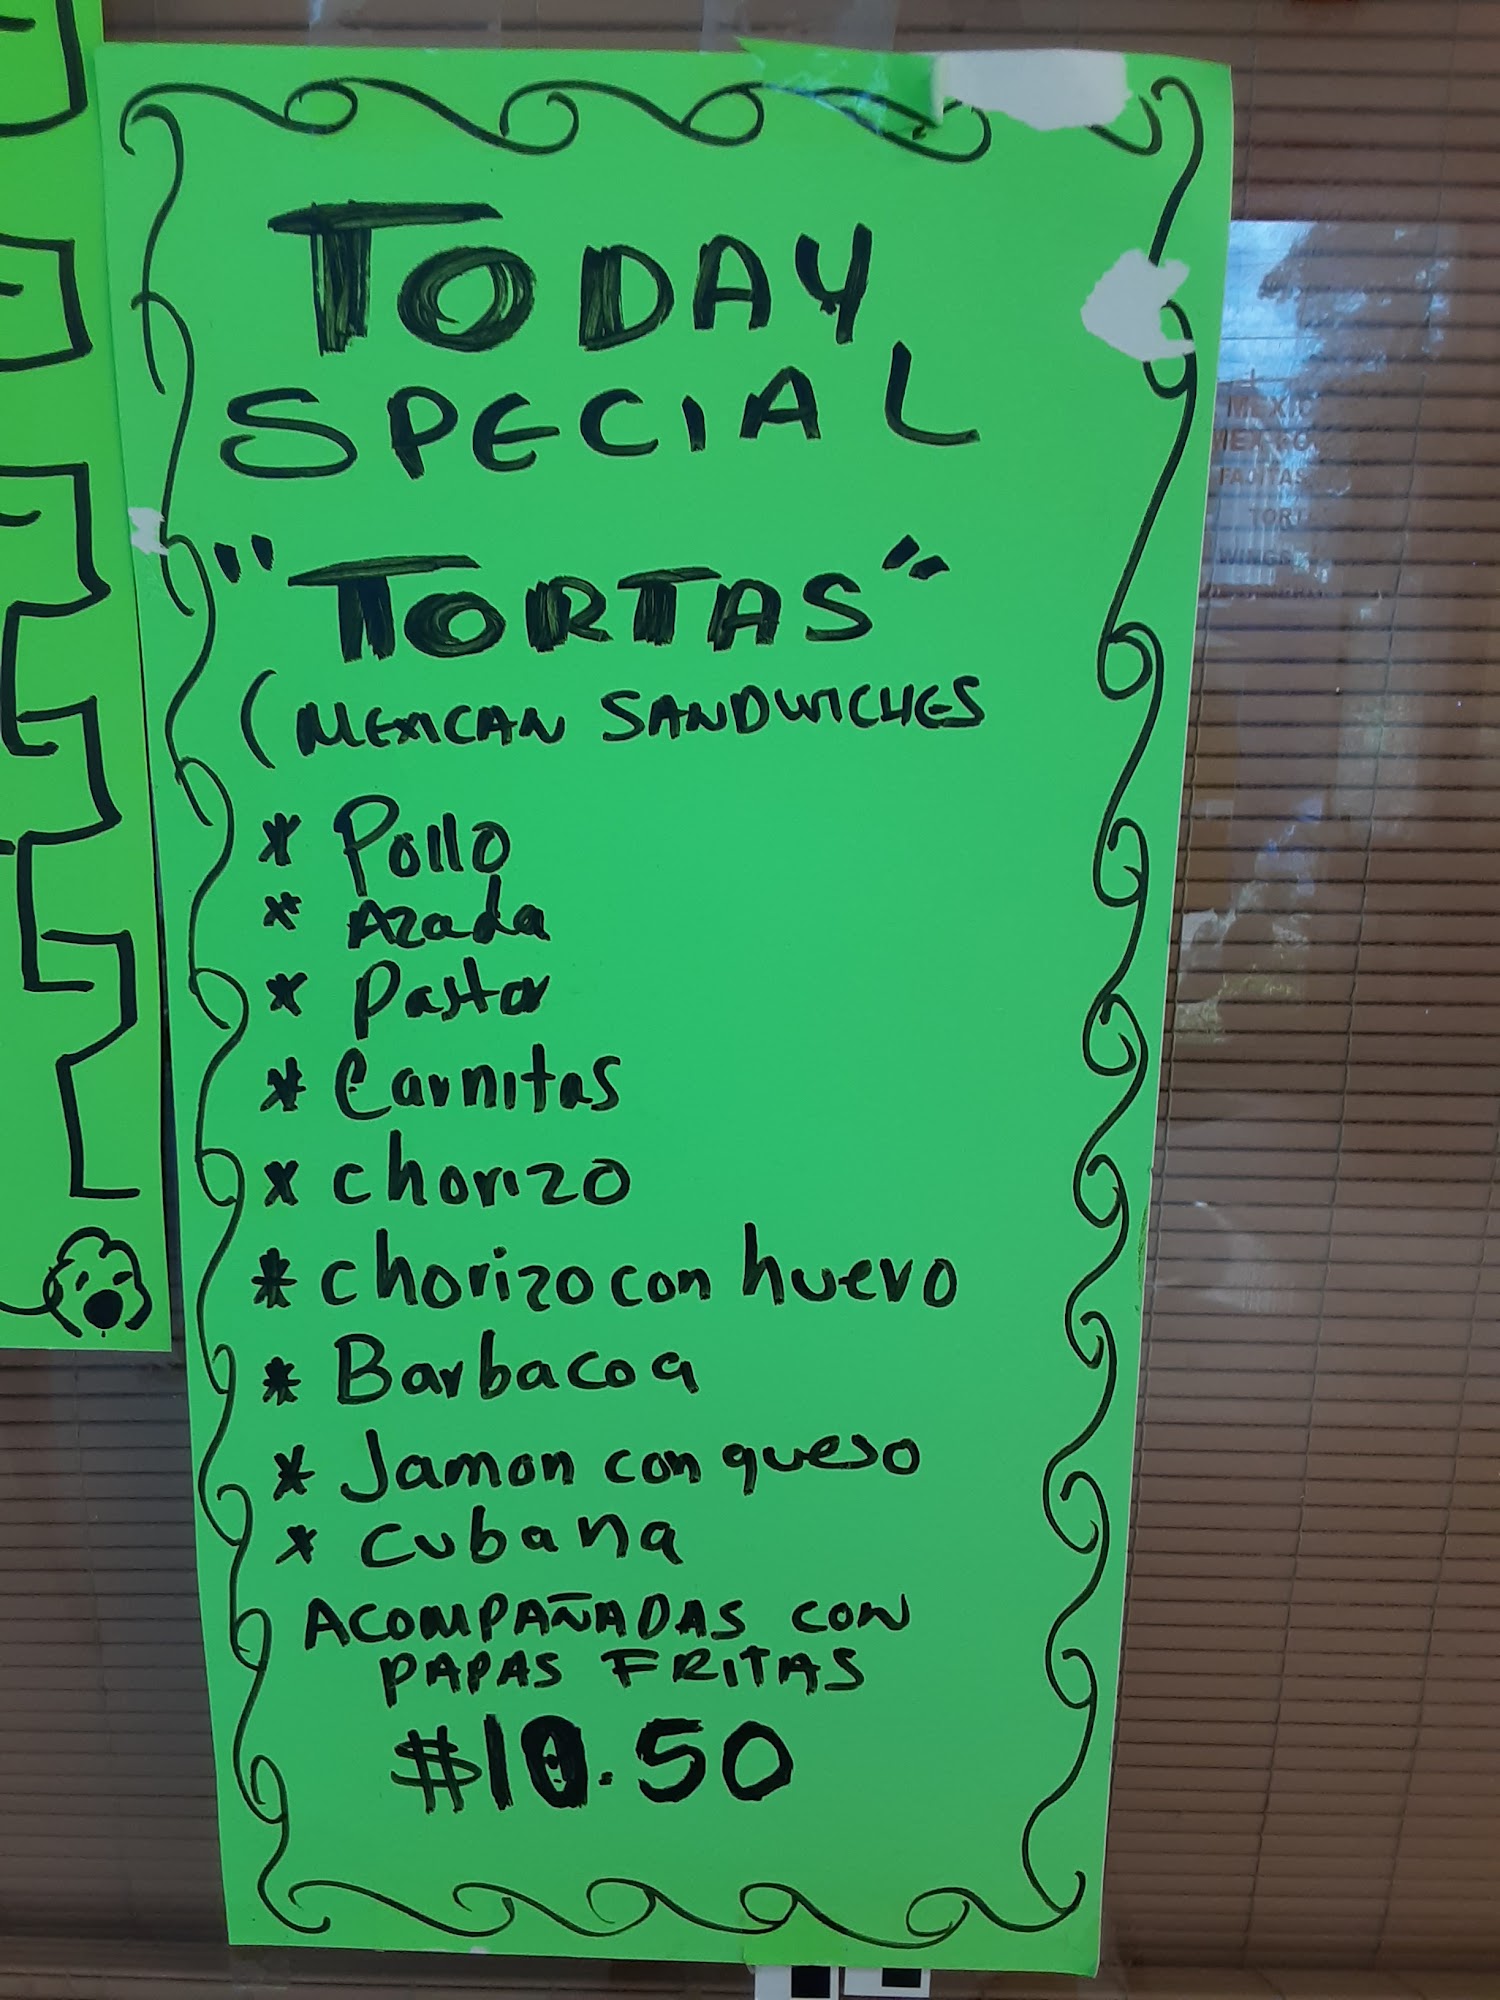 TODAY
SPECIAL
"TORTAS"
(MEXICAN SANDWICHES
* Pollo
* Azada
* Pastor
* Carnitas
* chorizo
* chorizo con huevo
* Barbacoa
* Jamon con queso
* cubana
ACOMPAÑADAS CON
PAPAS FRITAS
$10.50
FAJITAS
WINGS